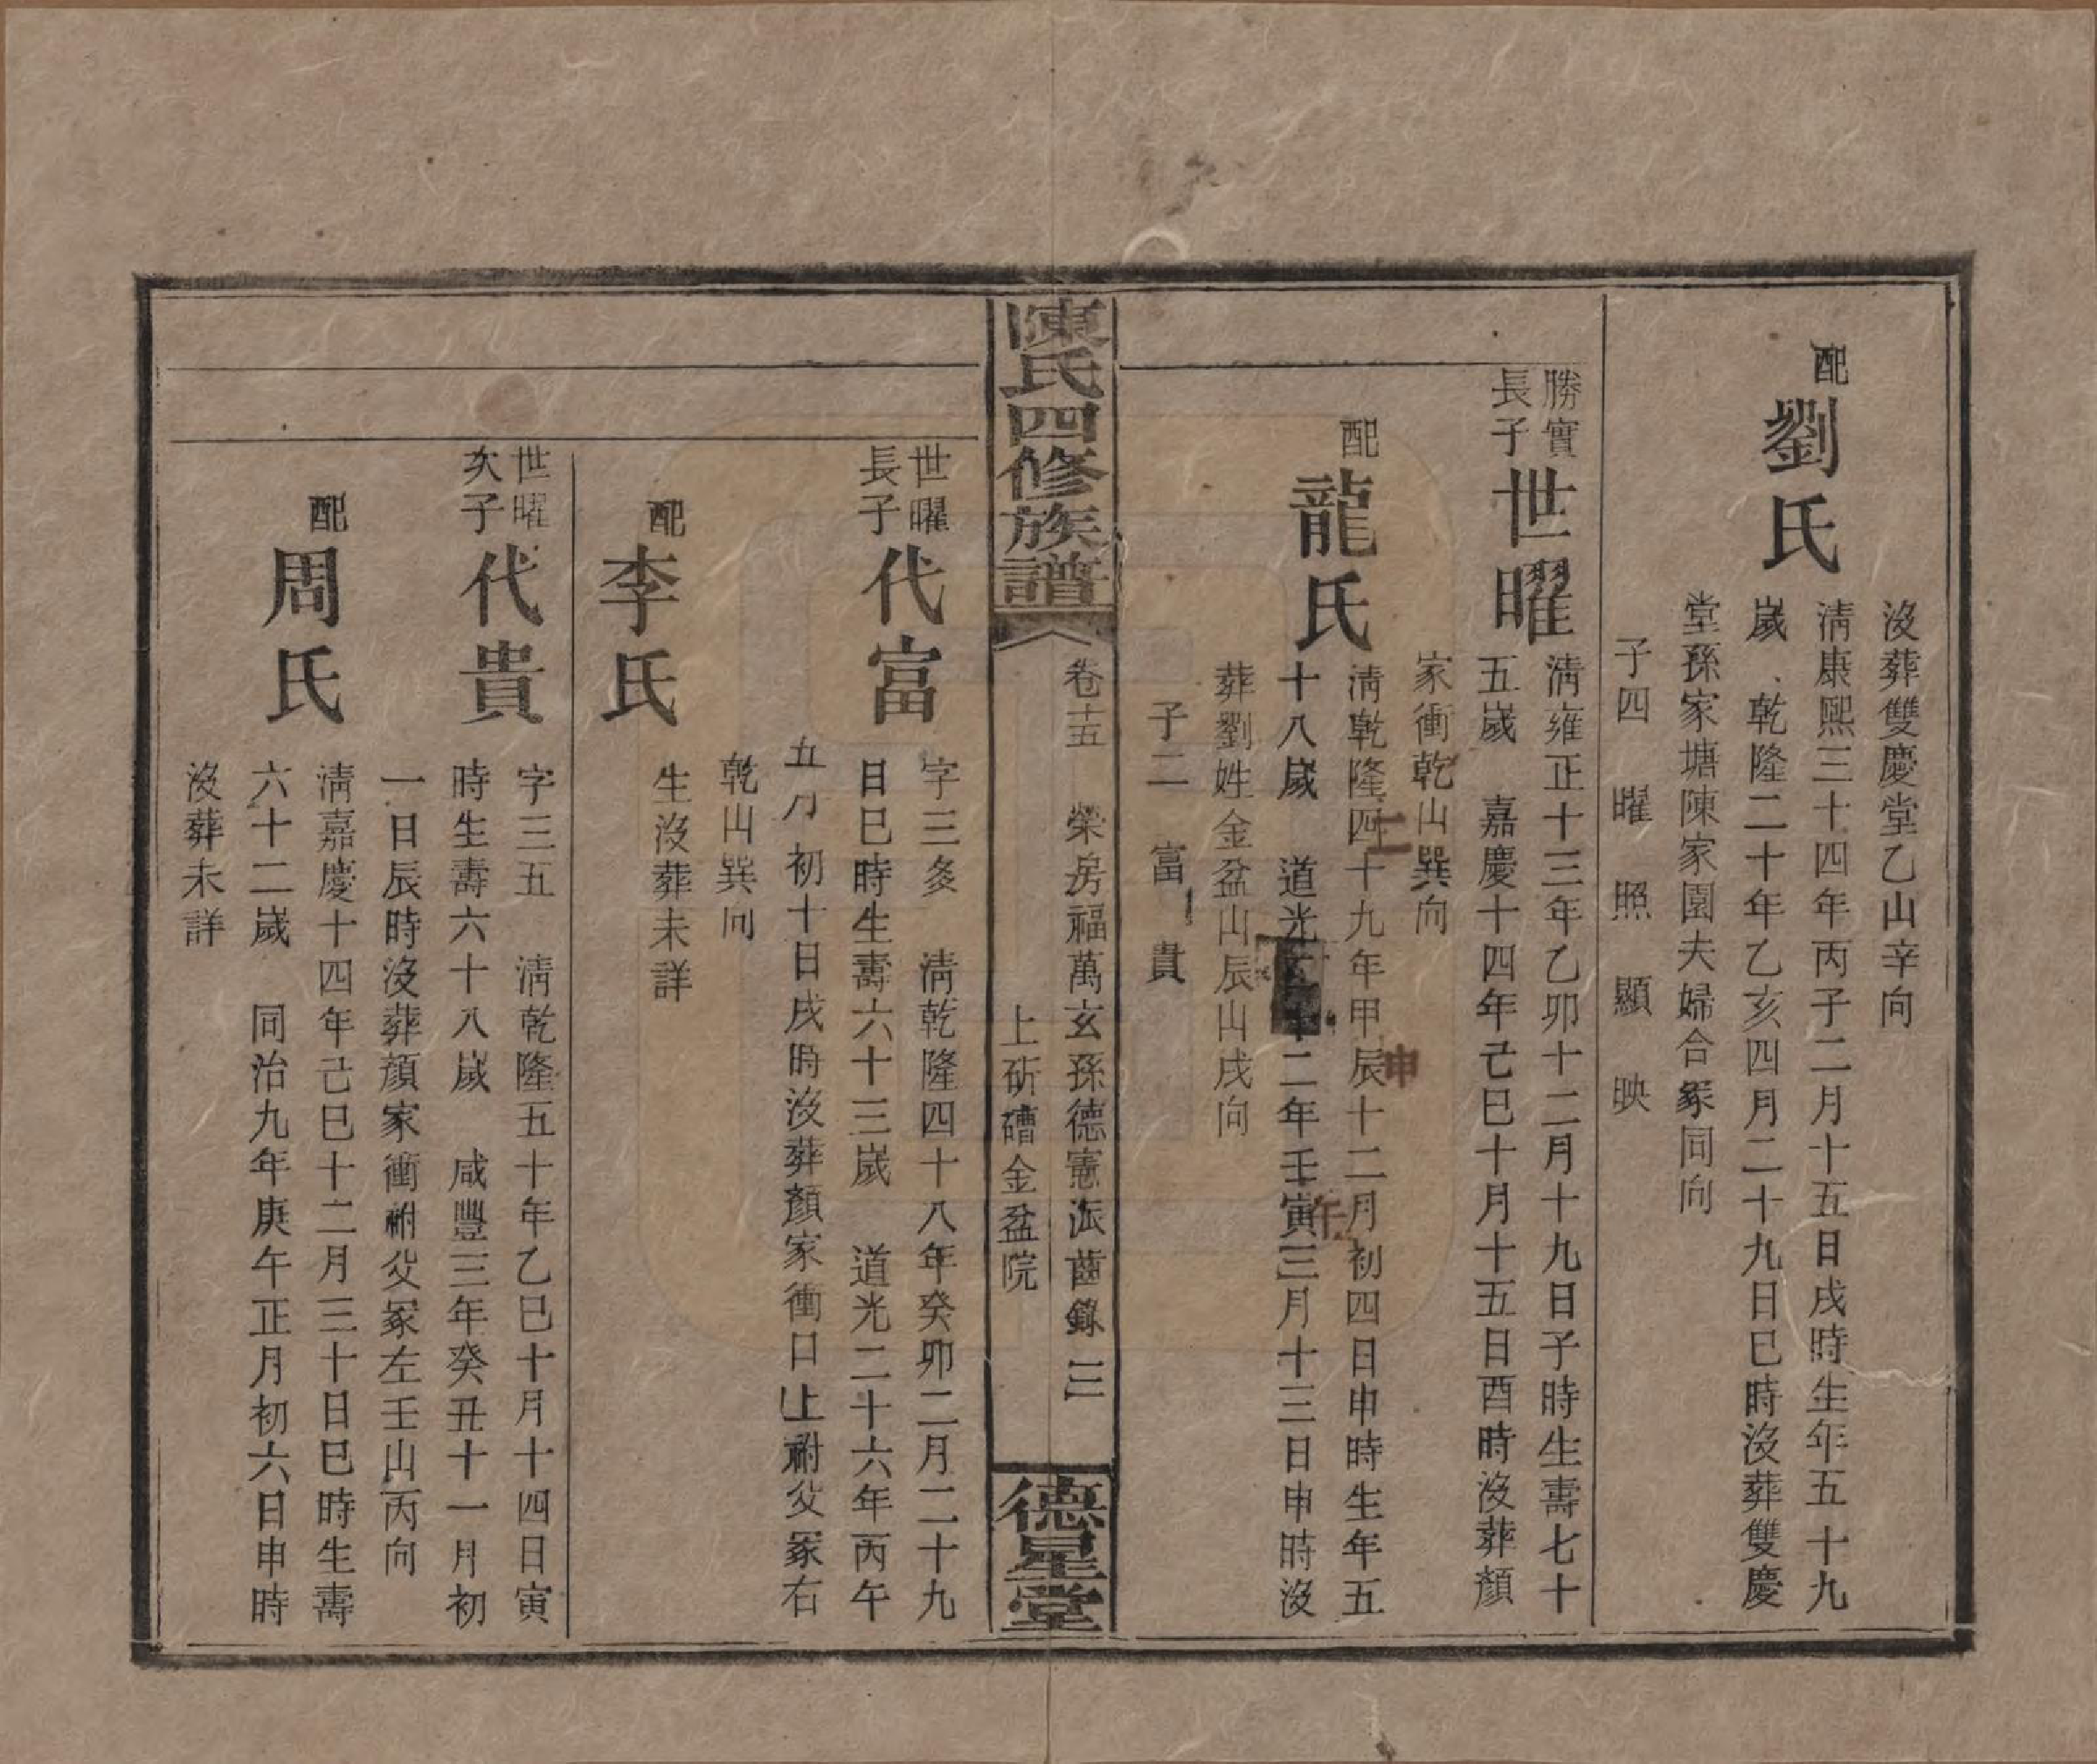 沒葬雙慶堂乙山辛向
配劉氏
清康熙三十四年丙子二月十五日戌時生年五十九
歲 乾隆二十年乙亥四月二十九日巳時沒葬雙慶
堂孫家塘陳家園夫婦合冢同向
子四 曜 照 顯 映
勝實
長子
世曜
清雍正十三年乙卯十二月十九日子時生壽七十
五歲 嘉慶十四年己巳十月十五日酉時沒葬顏
家衝乾山巽向
配龍氏
清乾隆四十九年甲辰十二月初四日申時生年五
十八歲 道光二十二年壬寅三月十三日申時沒
葬劉姓金盆山辰山戌向
子二 富 貴
仁
申
午
陳氏四修族譜
卷十五 榮房福萬玄孫德憲派齒錄 三
上斫磳金盆院
德星堂
世曜
長子
代富
字三多 清乾隆四十八年癸卯二月二十九
日巳時生壽六十三歲 道光二十六年丙午
五月初十日戌時沒葬顏家衝口上祔父冢右
乾山巽向
配李氏
生沒葬未詳
世曜
次子
代貴
字三五 清乾隆五十年乙巳十月十四日寅
時生壽六十八歲 咸豐三年癸丑十一月初
一日辰時沒葬顏家衝祔父冢左壬山丙向
配周氏
清嘉慶十四年己巳十二月三十日巳時生壽
六十二歲 同治九年庚午正月初六日申時
沒葬未詳